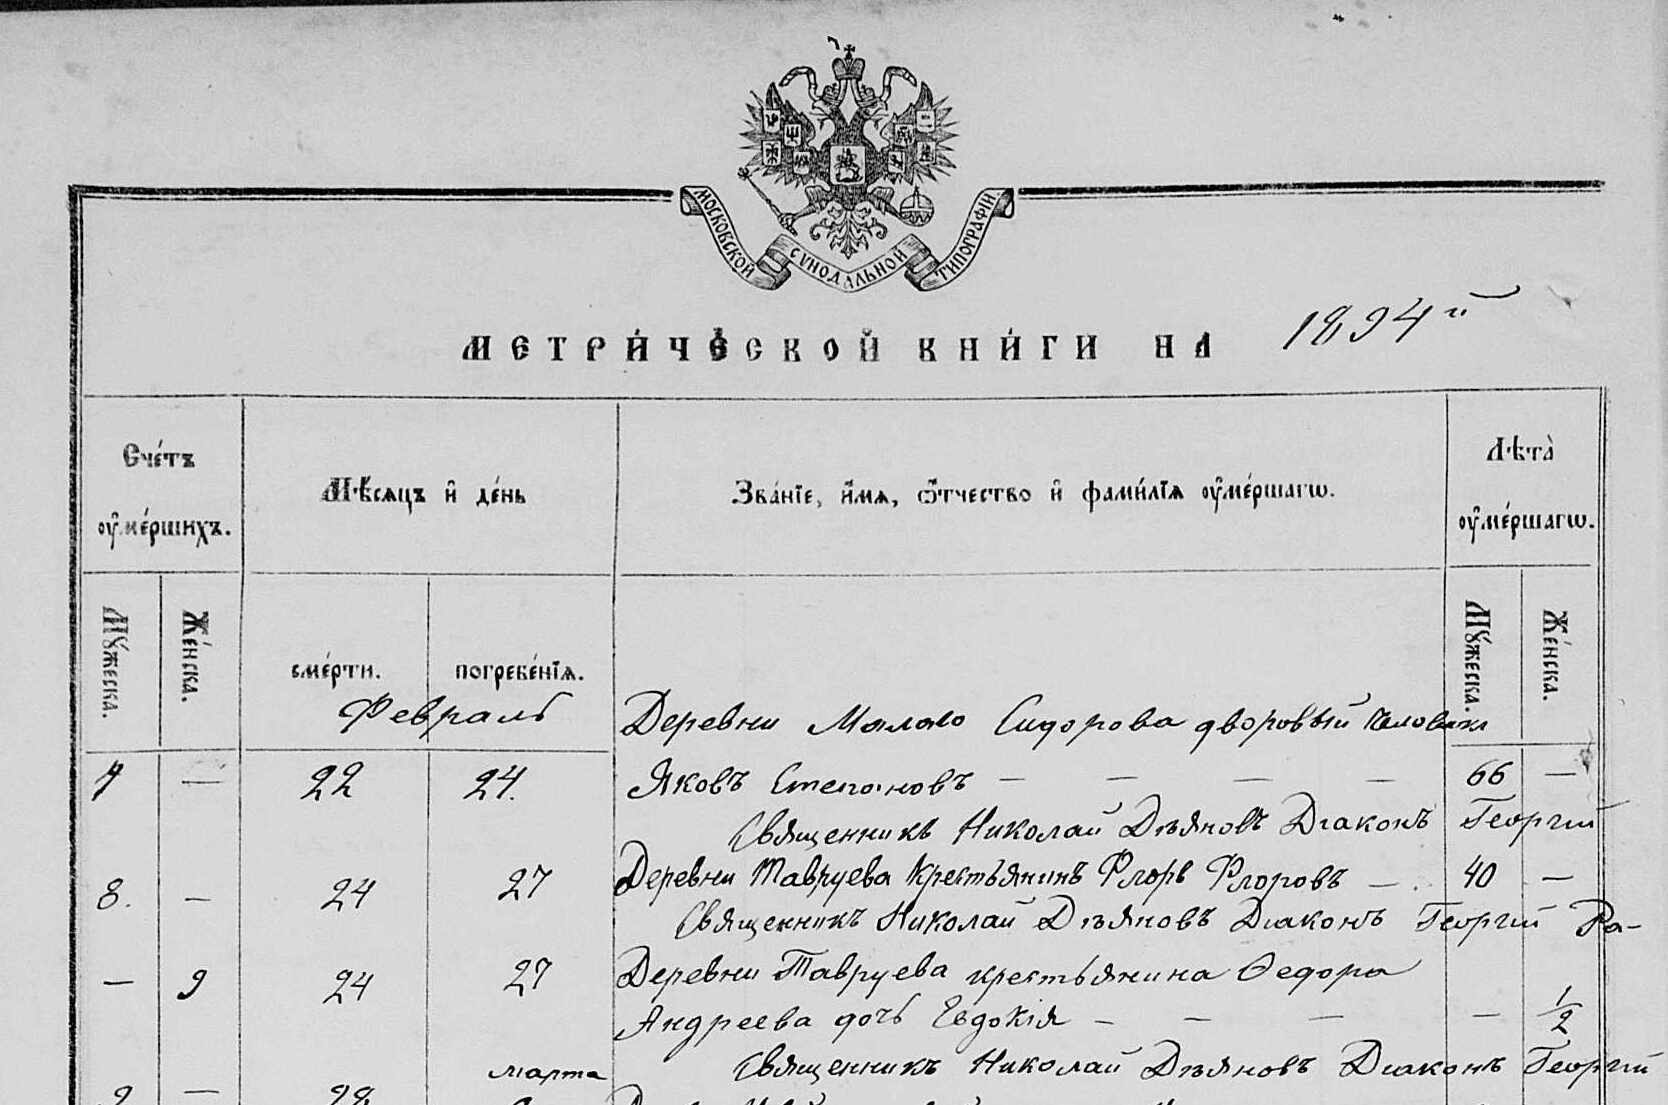 МОСКОВСКОЙ СѴНОДАЛЬНОЙ ТИПОГРАФІИ
МЕТРИ́ЧЕСКОЙ КНИ́ГИ НА 1894й
Сче́тъ ᲂу҆ме́ршихъ.
Мѣ́сяцъ и҆ де́нь
Зва́нїе, и҆́мѧ, ѻ҆́тчество и҆ фами́лїѧ ᲂу҆ме́ршагѡ.
Лѣ́та ᲂу҆ме́ршагѡ.
Мꙋ́жеска.
Же́нска.
сме́рти.
погребе́нїѧ.
Мꙋ́жеска.
Же́нска.
Февраль
Деревни Малаго Сидорова дворовый человекъ
7 — 22 24. Яковъ Степановъ — — — — 66 —
Священникъ Николай Дѣяновъ Діаконъ Георгій
8. — 24 27 Деревни Тавруева Крестьянинъ Флоръ Флоровъ — 40 —
Священникъ Николай Дѣяновъ Діаконъ Георгій Ра-
— 9 24 27 Деревни Тавруева крестьянина Ѳедора
Андреева дочь Евдокія — — — — 1/2
Священникъ Николай Дѣяновъ Діаконъ Георгій
марта
— 28